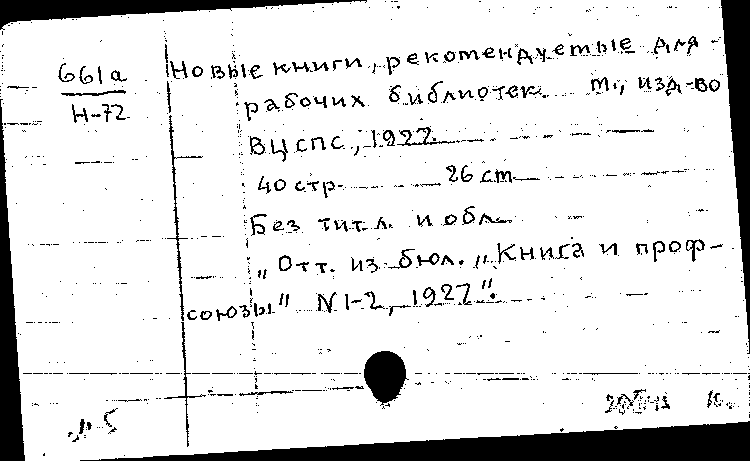 661а
Н-72
Новые книги, рекомендуемые для
рабочих библиотек. М., изд-во
ВЦСПС, 1927.
40 стр. 26 cm
Без тит. л. и обл.
„Отт. из бюл. „Книга и проф-
союзы" N 1-2, 1927".
5